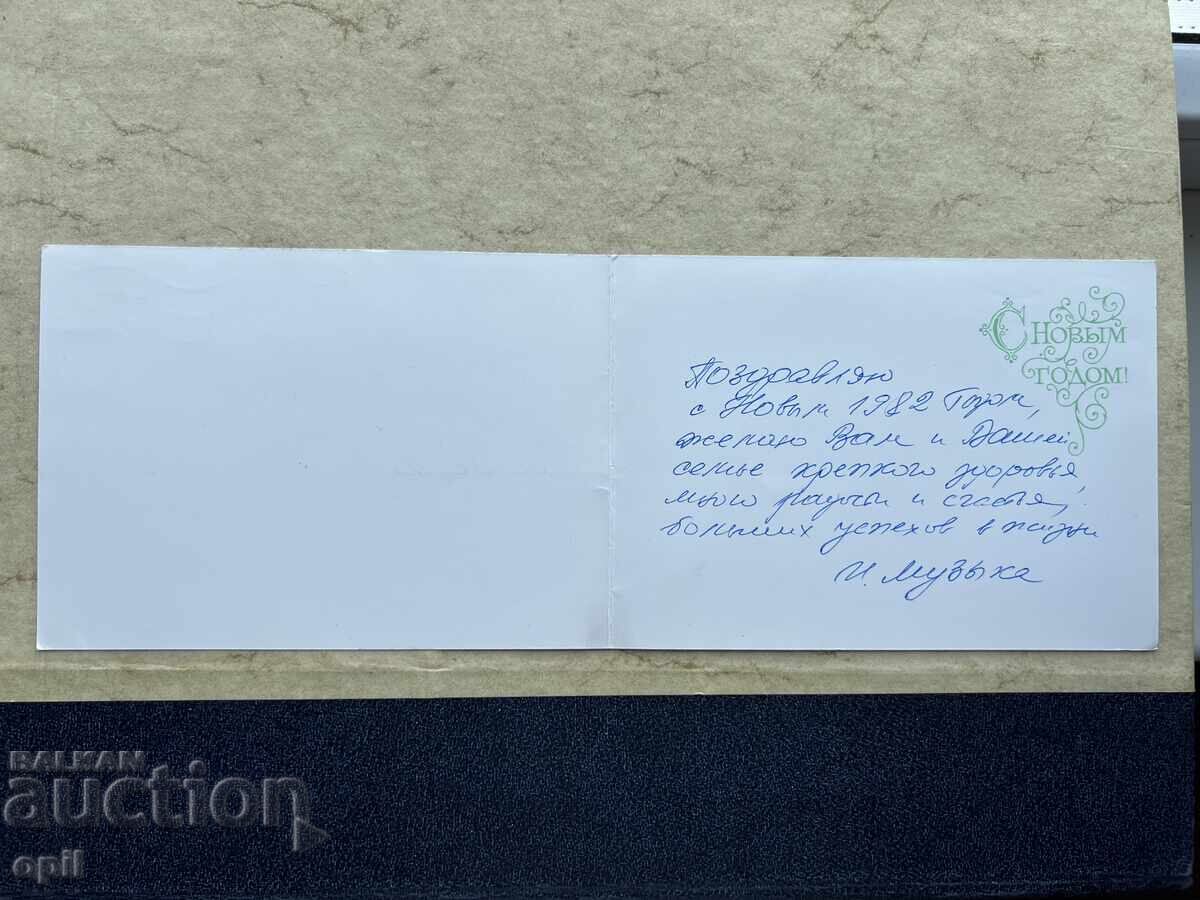 С НОВЫМ
ГОДОМ!
Поздравляю
с Новым 1982 Годом,
желаю Вам и Вашей
семье крепкого здоровья,
много радости и счастья,
больших успехов в жизни
И. Музыка
BALKAN
auction
opil